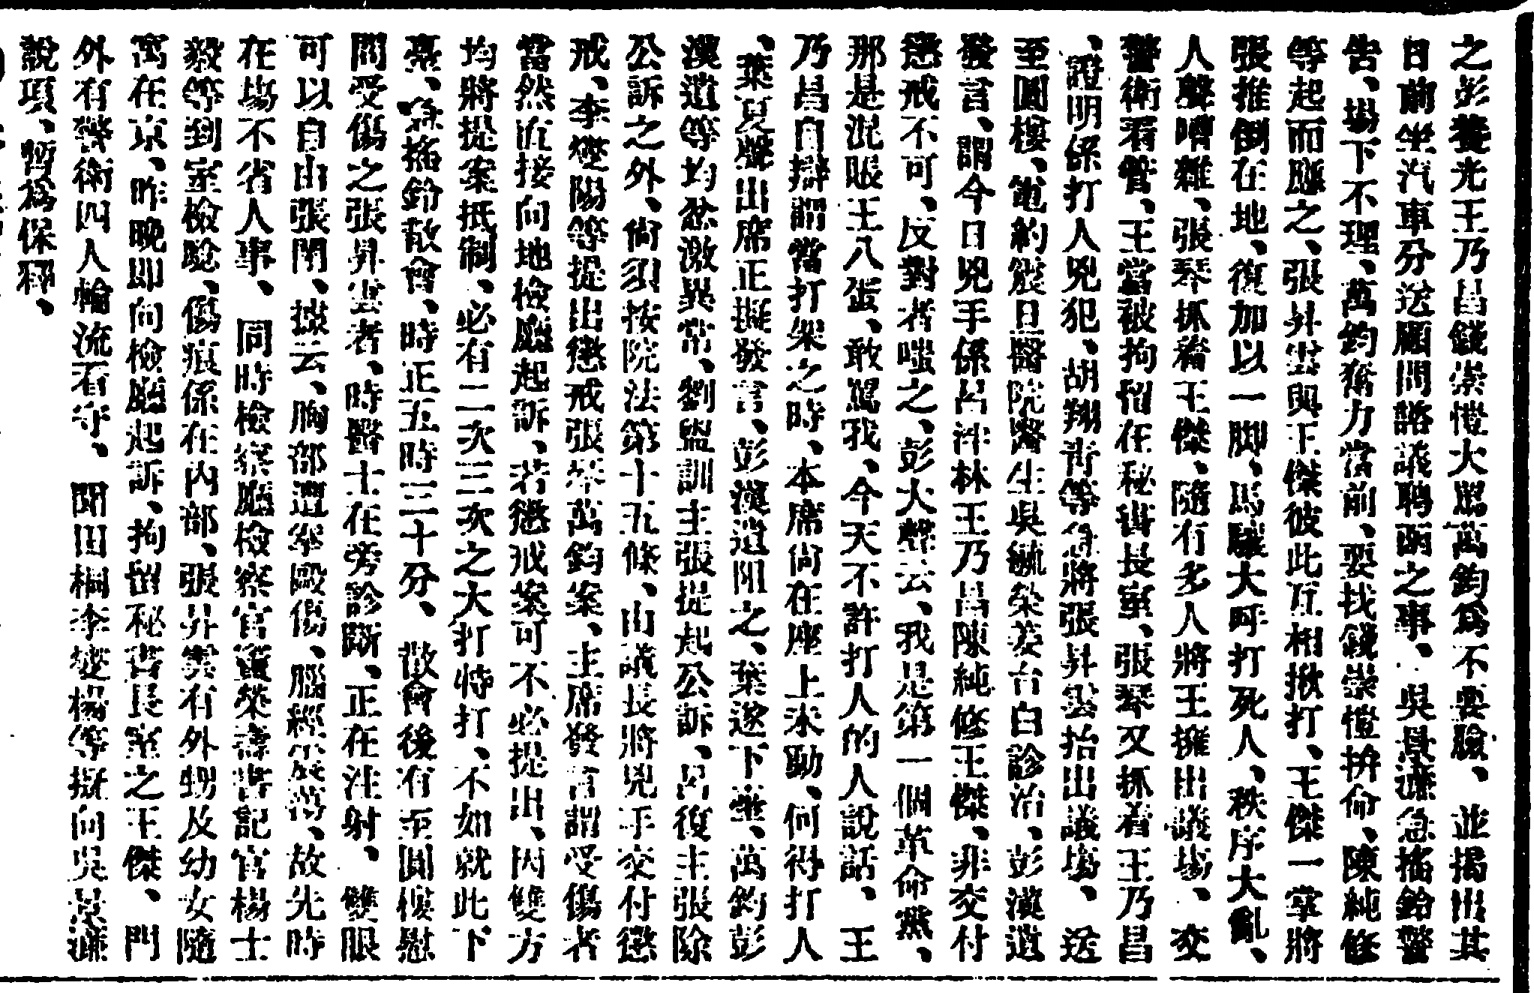 之彭養光王乃昌錢崇愷大罵萬鈞爲不要臉、並揭出其
日前坐汽車分送顧問諮議聘函之事、吳景濂急搖鈴警
告、場下不理、萬鈞奮力當前、要找錢崇愷拚命、陳純修
等起而應之、張昇雲與王傑彼此互相揪打、王傑一掌將
張推倒在地、復加以一脚、馬驤大呼打死人、秩序大亂、
人聲嘈雜、張琴抓着王傑、隨有多人將王擁出議場、交
警衛看管、王當被拘留在秘書長室、張琴又抓着王乃昌
、證明係打人兇犯、胡翔青等急將張昇雲抬出議場、送
至圓樓、電約發日醫院醫生吳毓榮姜台白診治、彭漢遺
發言、謂今日兇手係呂泮林王乃昌陳純修王傑、非交付
懲戒不可、反對者嗤之、彭大聲云、我是第一個革命黨、
那是混賬王八蛋、敢罵我、今天不許打人的人說話、王
乃昌自辯謂當打架之時、本席尙在座上未動、何得打人
、葉夏聲出席正擬發言、彭漢遺阻之、葉遂下臺、萬鈞彭
漢遺等均忿激異常、劉盥訓主張提起公訴、呂復主張除
公訴之外、尙須按院法第十五條、由議長將兇手交付懲
戒、李燮陽等提出懲戒張琴萬鈞案、主席發言謂受傷者
當然直接向地檢廳起訴、若懲戒案可不必提出、因雙方
均將提案抵制、必有二次三次之大打特打、不如就此下
臺、急搖鈴散會、時正五時三十分、散會後有至圓樓慰
問受傷之張昇雲者、時醫士在旁診斷、正在注射、雙眼
可以自由張閉、據云、胸部遭拳毆傷、腦經受傷、故先時
在場不省人事、同時檢察廳檢察官董榮壽書記官楊士
毅等到室檢驗、傷痕係在內部、張昇雲有外甥及幼女隨
寓在京、昨晚即向檢廳起訴、拘留秘書長室之王傑、門
外有警衛四人輪流看守、聞田桐李燮楊等擬向吳景濂
說項、暫爲保釋、